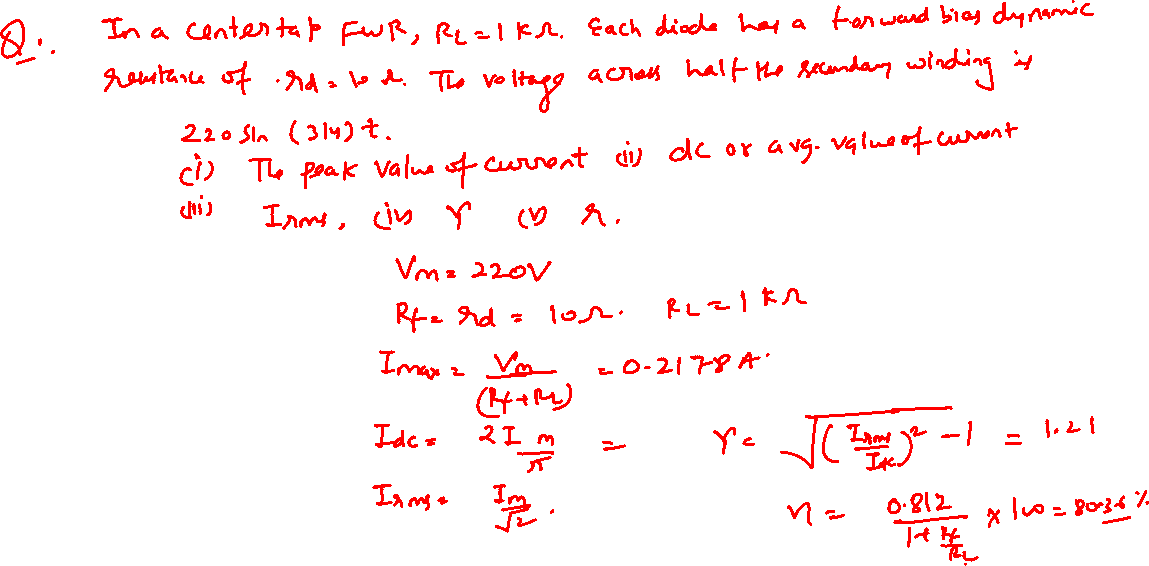 Q:. In a center tap FWR, RL = 1 KΩ. Each diode has a forward bias dynamic
resistance of rd = 10 Ω. The voltage across half the secondary winding is
220 sin (314) t.
(i) The peak value of current (ii) dc or avg. value of current
(iii) Irms, (iv) γ (v) η.
Vm = 220V
Rf = rd = 10Ω. RL = 1 KΩ
Imax = Vm/(Rf+RL) = 0.2178 A.
Idc = 2Im/π = γ = √((Irms/Idc)² - 1) = 1.21
Irms = Im/√2. η = 0.812/(1+Rf/RL) × 100 = 80.36 %